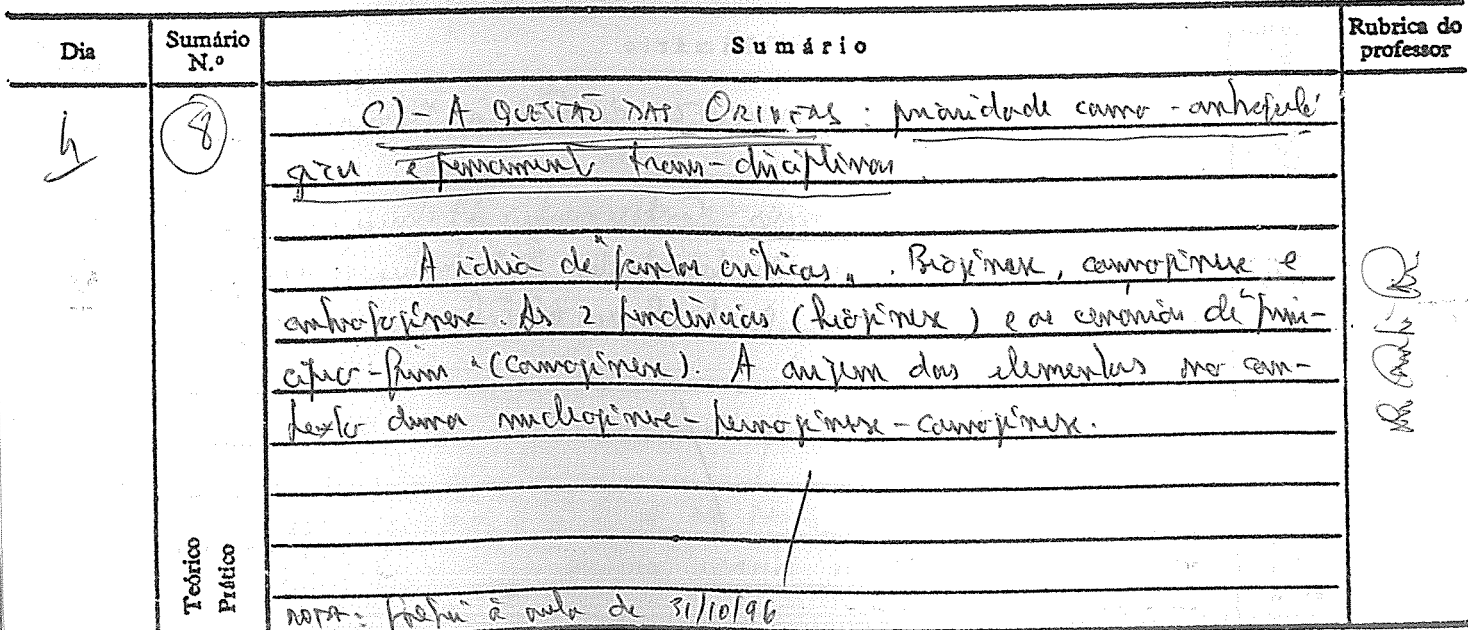 Dia
Sumário N.º
Sumário
Rubrica do professor
4
8
C) - A QUESTÃO DAS ORIGENS: prioridade cosmo-antropoló-
gica e pensamento trans-disciplinar.
A ideia de "pontos críticos". Biogénese, cosmogénese e
antropogénese. As 2 tendências (biogénese) e os cenários de "prin-
cípio-fim" (cosmogénese). A origem dos elementos no con-
texto duma nucleogénese - cosmogénese.
Teórico
Prático
NOTA: à aula de 31/10/96